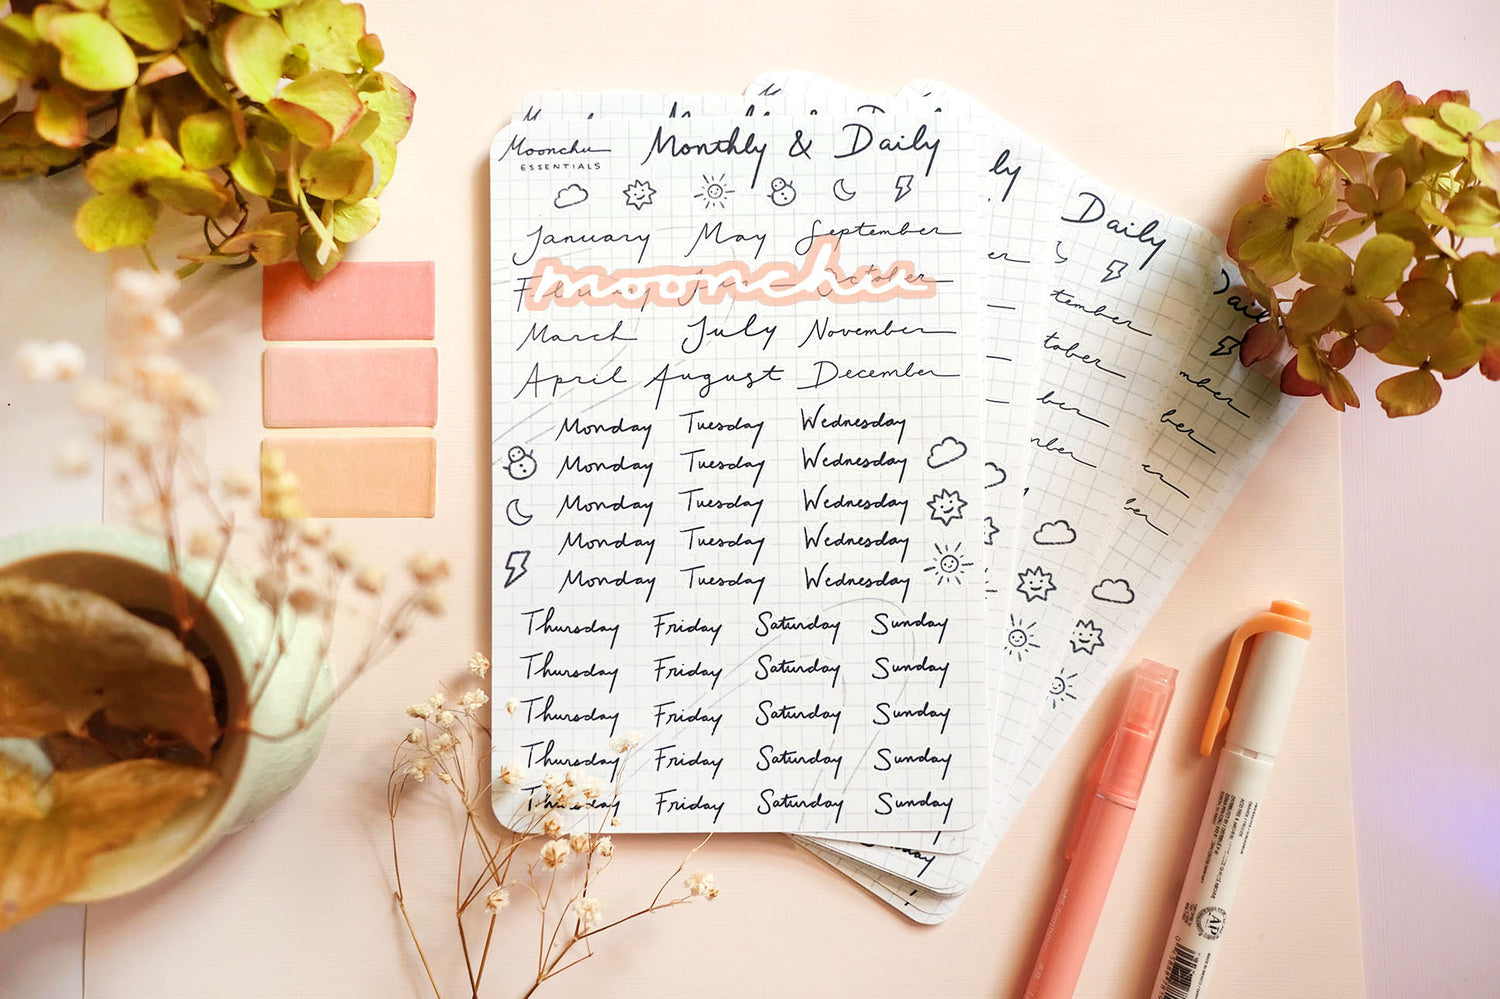 Moonchu
ESSENTIALS
Monthly & Daily
January May September
moonchu
February June October
March July November
April August December
Monday Tuesday Wednesday
Monday Tuesday Wednesday
Monday Tuesday Wednesday
Monday Tuesday Wednesday
Monday Tuesday Wednesday
Thursday Friday Saturday Sunday
Thursday Friday Saturday Sunday
Thursday Friday Saturday Sunday
Thursday Friday Saturday Sunday
Thursday Friday Saturday Sunday
ly
er
Daily
tember
tober
ber
mber
Daily
mber
ber
er
ber
AP